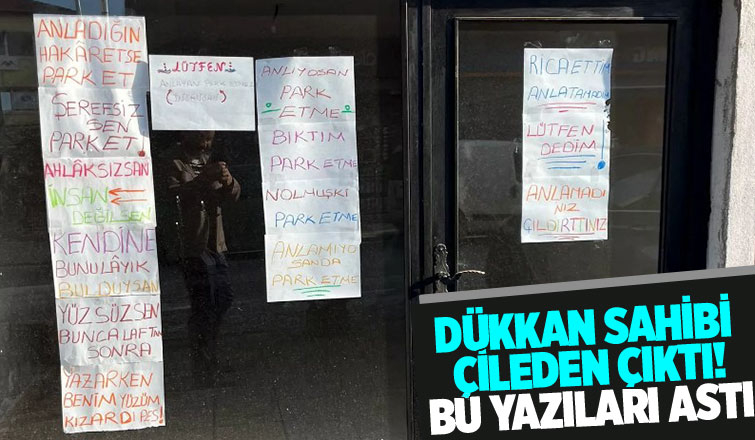 ANLADIĞIN
HAKÂRETSE
PARK ET
ŞEREFSİZ
SEN
PARKET!
AHLÂKSIZSAN
İNSAN
DEĞİLSEN
KENDİNE
BUNU LÂYIK
BULDUYSAN
YÜZSÜZSEN
BUNCA LAFTAN
SONRA
YAZARKEN
BENİM YÜZÜM
KIZARDI PES!
LÜTFEN
ANLAYAN PARK ETMEZ
ANLIYOSAN
PARK
ETME
BIKTIM
PARK ETME
NOLMUŞKİ
PARK ETME
ANLAMIYO
SANDA
PARK ETME
RİCA ETTİM
ANLATAMADIM
LÜTFEN
DEDİM!
ANLAMADI
NIZ
ÇILDIRTTINIZ
DÜKKAN SAHİBİ
ÇİLEDEN ÇIKTI!
BU YAZILARI ASTI